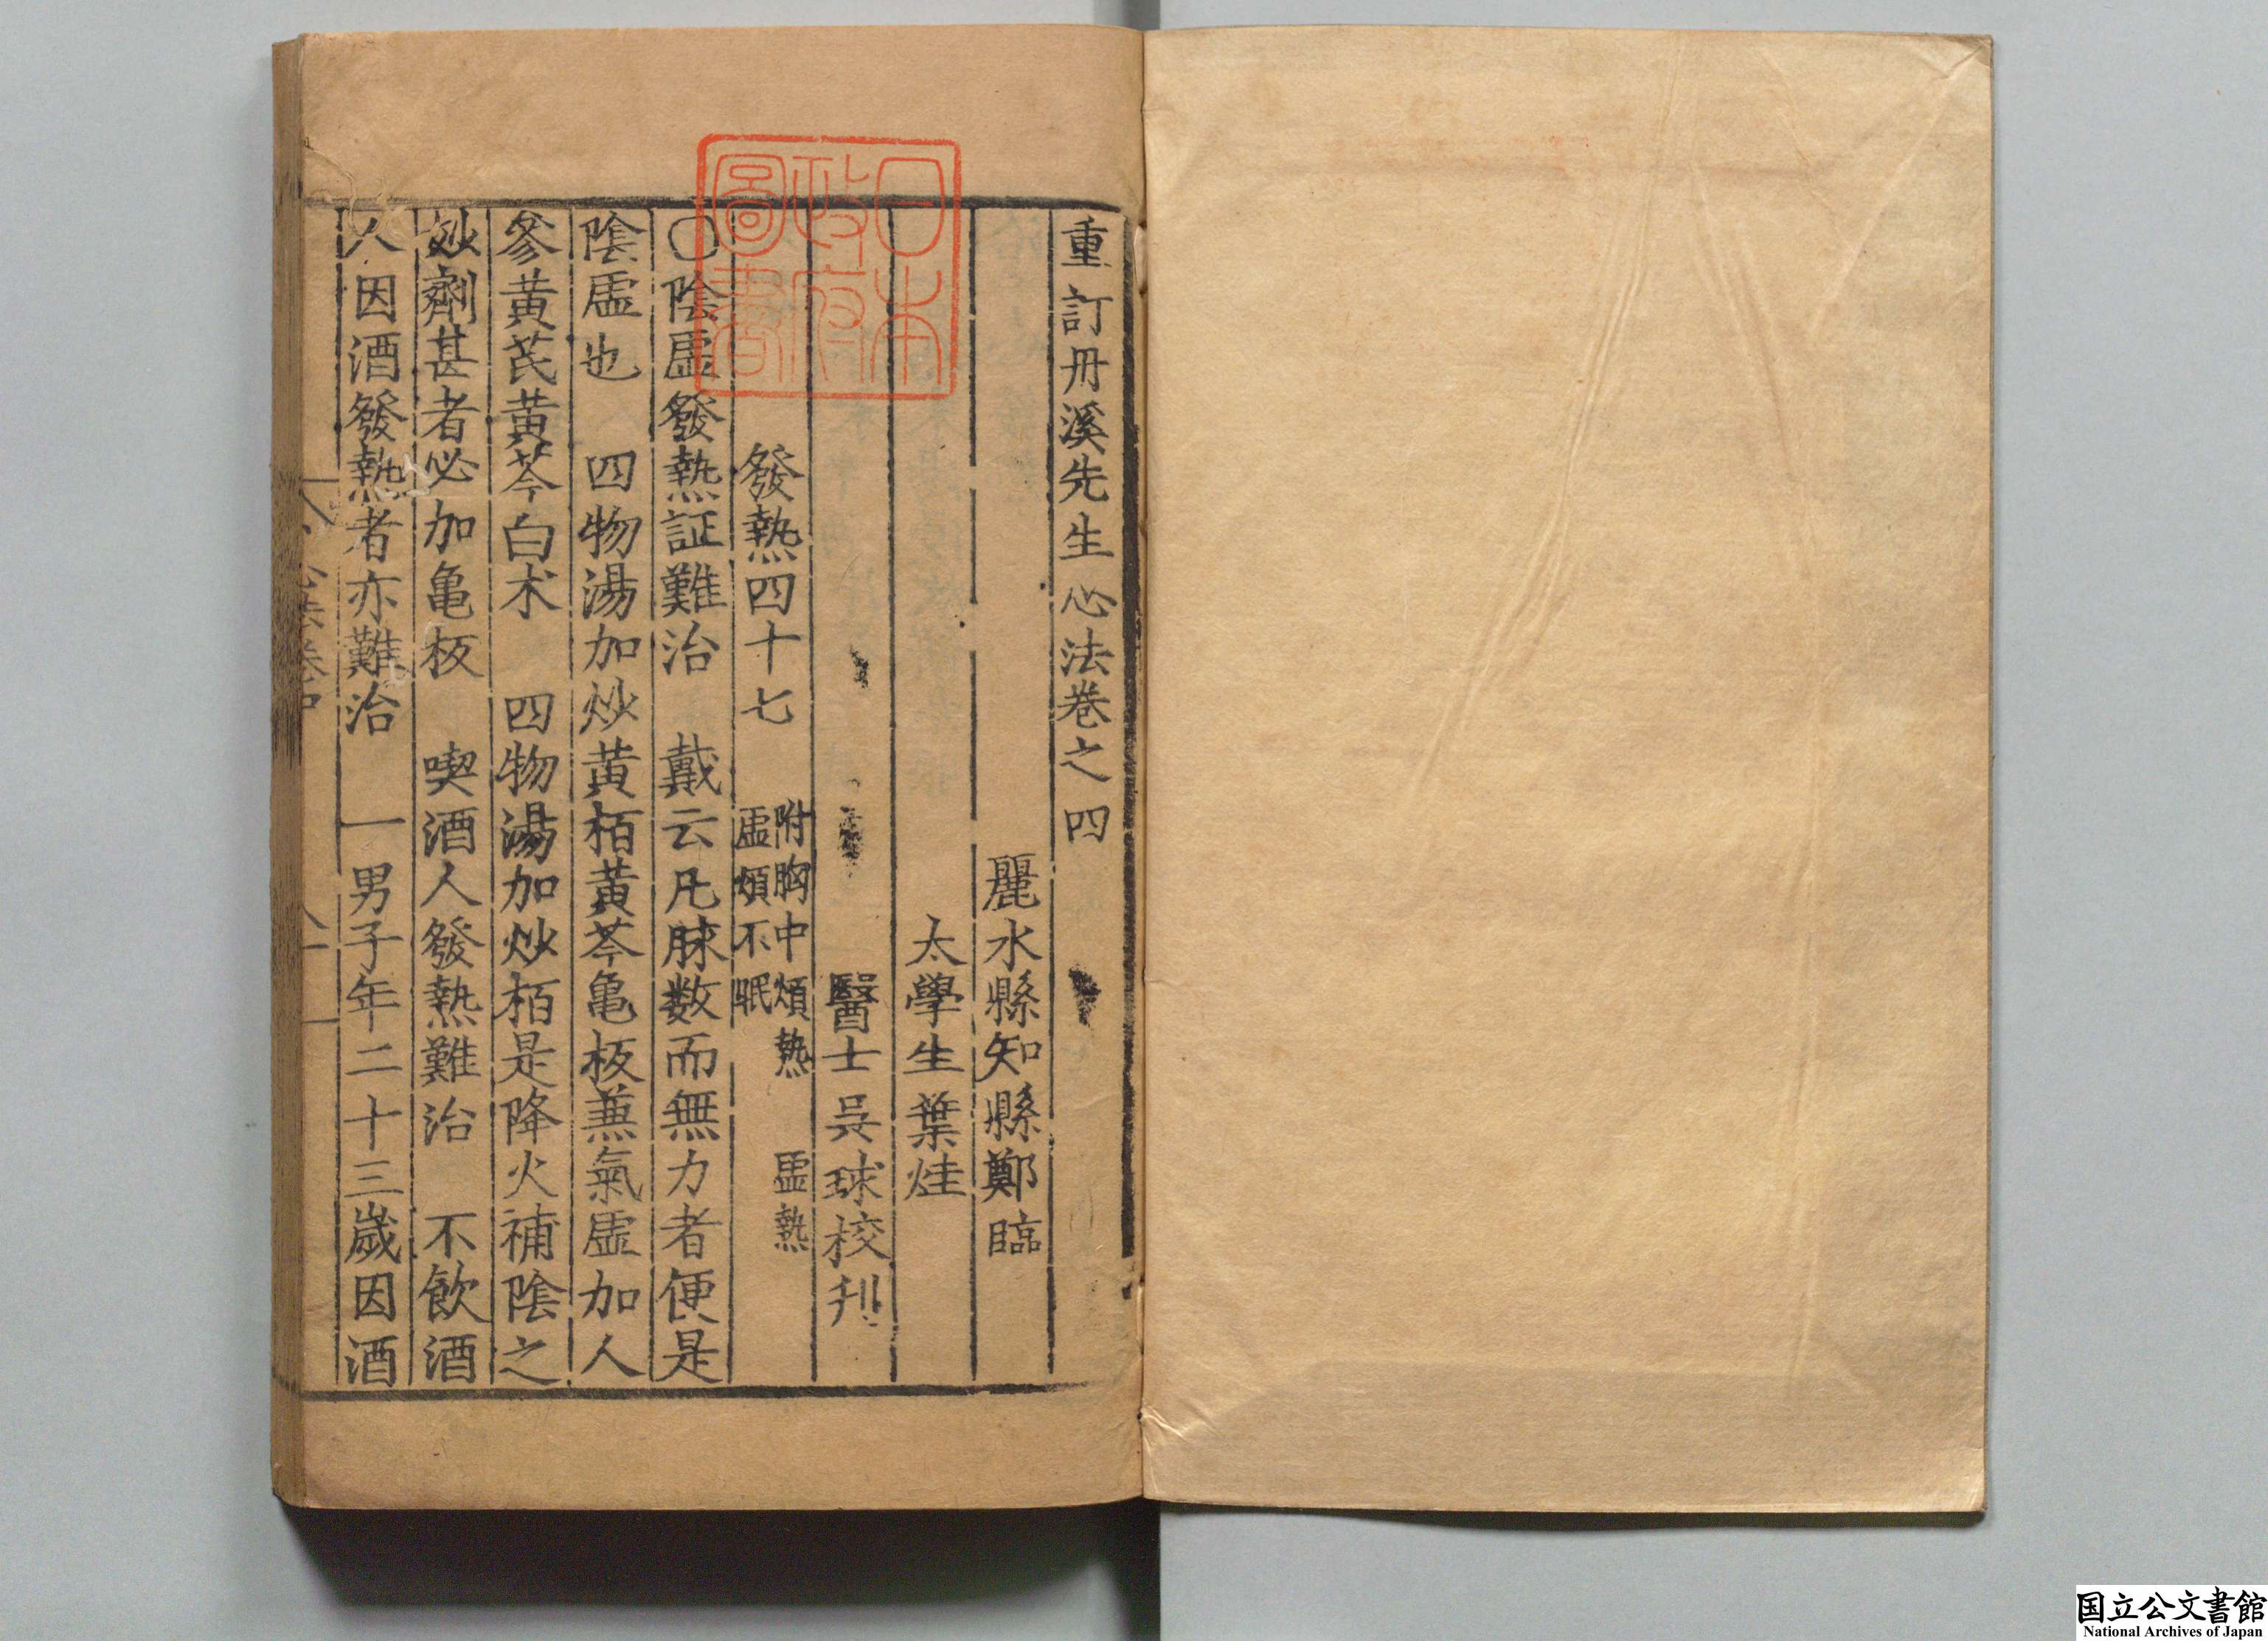 重訂丹溪先生心法卷之四
麗水縣知縣鄭臨
太學生葉烓
醫士吳球校刋
發熱四十七　附胸中煩熱　虛熱
虛煩不眠
○陰虛發熱証難治　戴云凡脉数而無力者便是
陰虛也　四物湯加炒黃栢黃芩亀板兼氣虛加人
參黃芪黃芩白术　四物湯加炒栢是降火補陰之
妙劑甚者必加亀板　喫酒人發熱難治　不飲酒
人因酒發熱者亦難治　一男子年二十三歲因酒
日本
政府
圖書
国立公文書館
National Archives of Japan